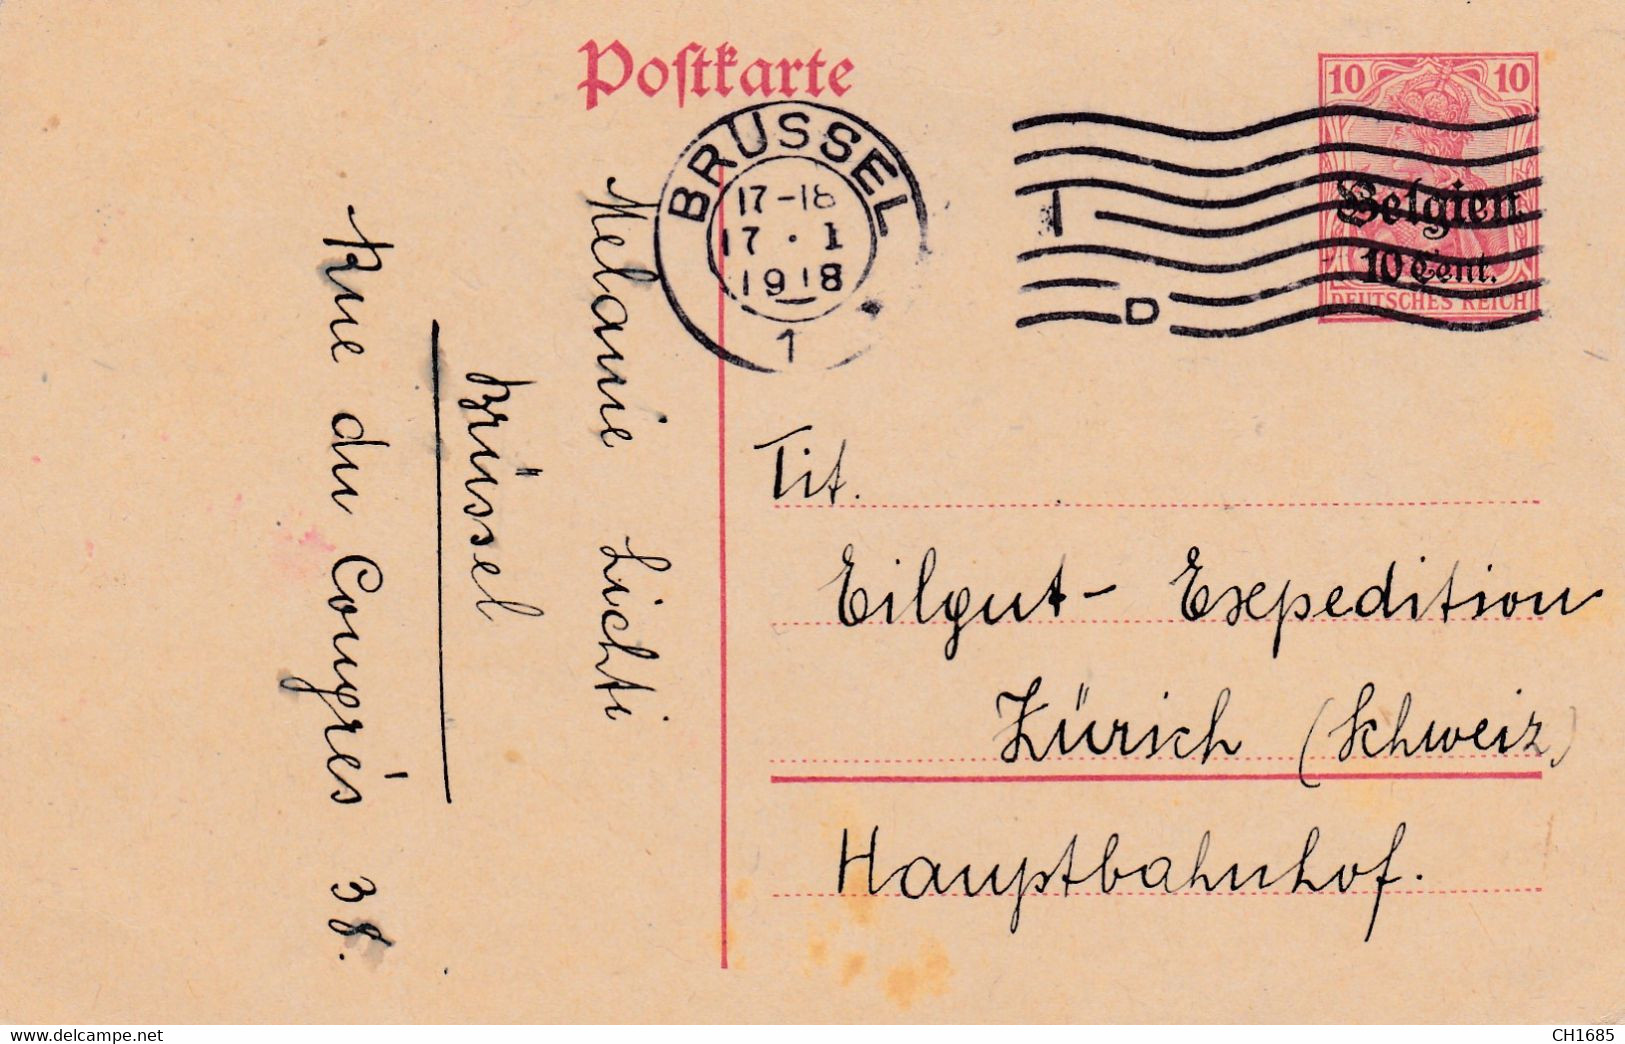 Postkarte
10 10
Belgien
10 Cent.
DEUTSCHES REICH
BRÜSSEL
17-18
17 . 1
1918
1
D
Melanie Lichti
Brüssel
Rue du Congrès 38.
Tit.
Eilgut- Expedition
Zürich (Schweiz)
Hauptbahnhof.
www.delcampe.net
CH1685